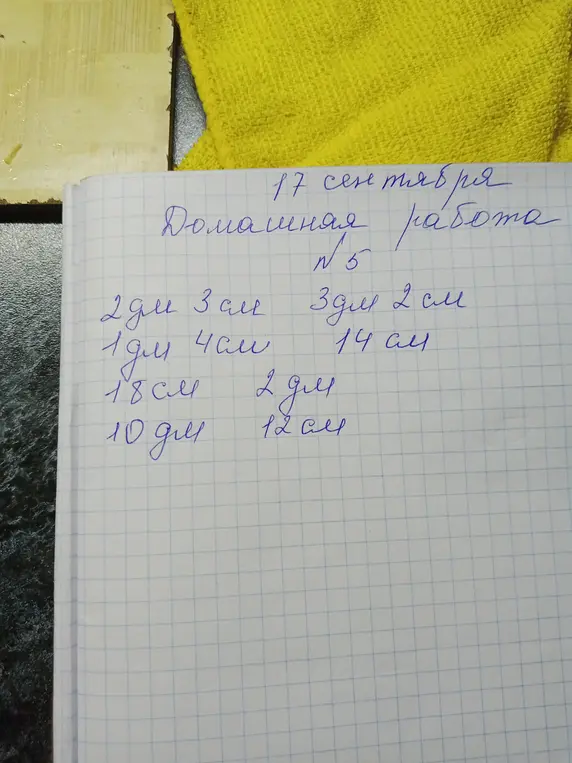 17 сентября
Домашная работа
№ 5
2 дм 3 см 3 дм 2 см
1 дм 4 см 14 см
18 см 2 дм
10 дм 12 см